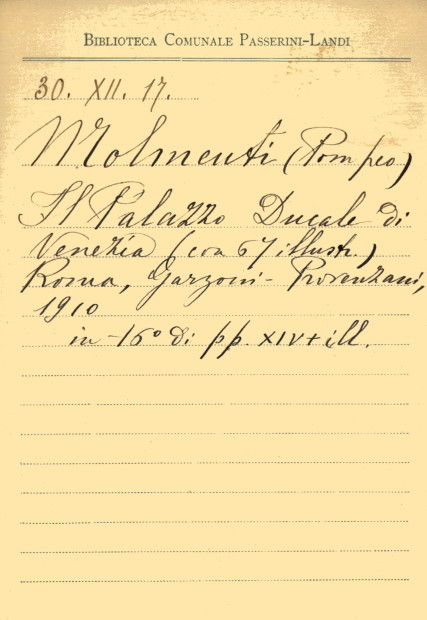 BIBLIOTECA COMUNALE PASSERINI-LANDI
30. XII. 17.
Molmenti (Pompeo)
Il Palazzo Ducale di
Venezia (con 67 illustr.)
Roma, Garzoni-Provenzani,
1910
in-16º di pp. XIV + ill.